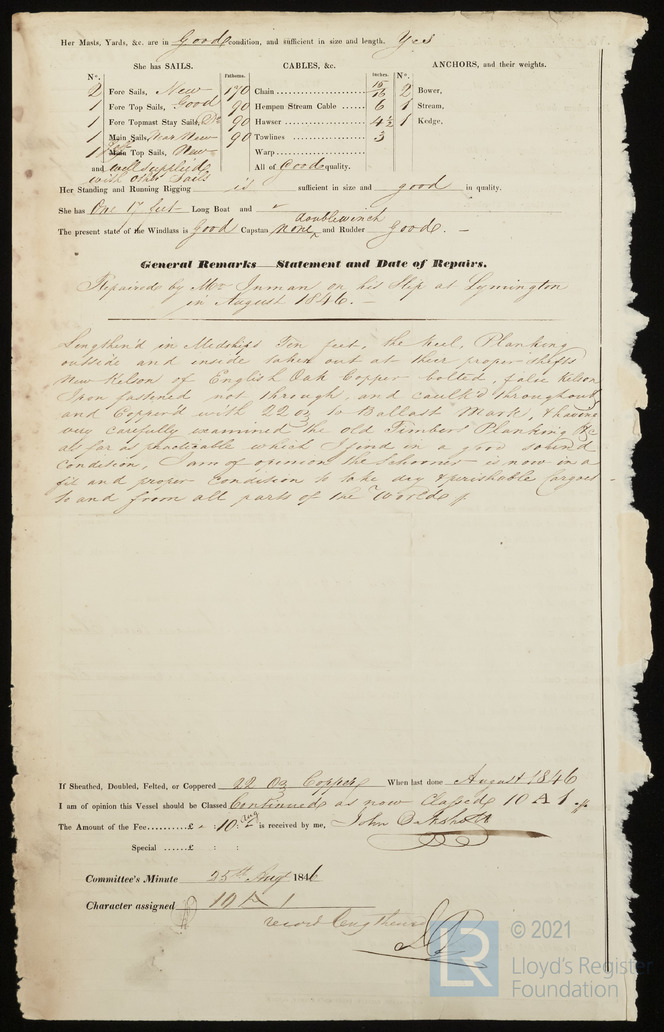 Her Masts, Yards, &c. are in Good condition, and sufficient in size and length. Yes
She has SAILS. CABLES, &c. ANCHORS, and their weights.
N°. Fathoms. Inches. N°.
2 Fore Sails, New 170 Chain 15/16 2 Bower,
1 Fore Top Sails, Good 90 Hempen Stream Cable 6 1 Stream,
1 Fore Topmast Stay Sails, Do 90 Hawser 4½ 1 Kedge,
1 Main Sails, Near New 90 Towlines 3
1 Main Top Sails, New Warp
and well supplied All of Good quality.
with other Sails
Her Standing and Running Rigging is sufficient in size and good in quality.
She has One 17 feet Long Boat and
double winch
The present state of the Windlass is Good Capstan none and Rudder good. –
General Remarks Statement and Date of Repairs.
Repaired by Mr Inman on his Slip at Lymington
in August 1846. –
Lengthen'd in Midships Ten feet, the keel, Planking
outside and inside taken out at their proper shifts
New Kelson of English Oak Copper bolted, false Kelson
Iron fastened not through, and caulk'd throughout
and Copper'd with 22 oz to Ballast Mark, & having
very carefully examined the old Timbers Planking &c
as far as practicable which I find in a good sound
condition, I am of opinion the Schooner is now in a
fit and proper Condition to take dry & perishable Cargoes
to and from all parts of the World
If Sheathed, Doubled, Felted, or Coppered 22 Oz Copper When last done August 1846
I am of opinion this Vessel should be Classed Continued as now Classed 10 A 1
The Amount of the Fee £ : 10 : is received by me, John
Special £ : :
Committee's Minute 25th Augt 1846
Character assigned 10 A 1
record lengthened
LR
© 2021
Lloyd's Register
Foundation